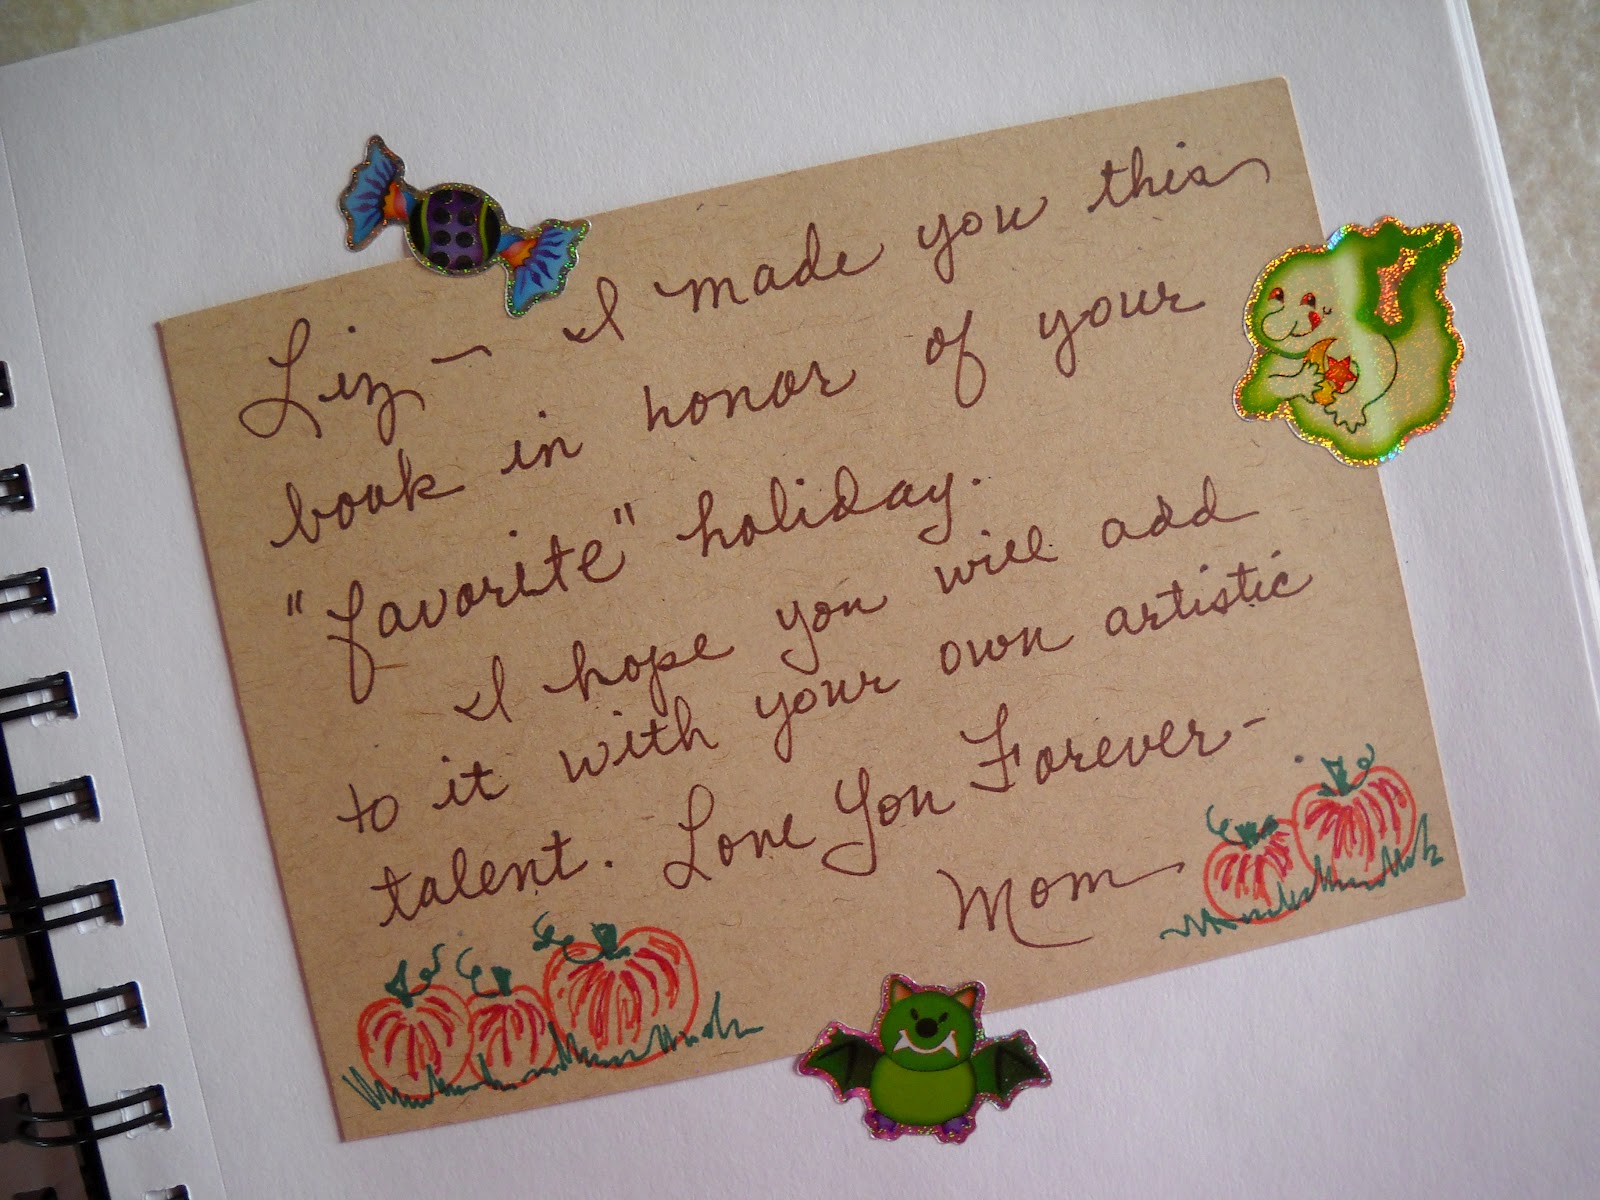 Liz — I made you this
book in honor of your
"favorite" holiday.
I hope you will add
to it with your own artistic
talent. Love You Forever -
Mom